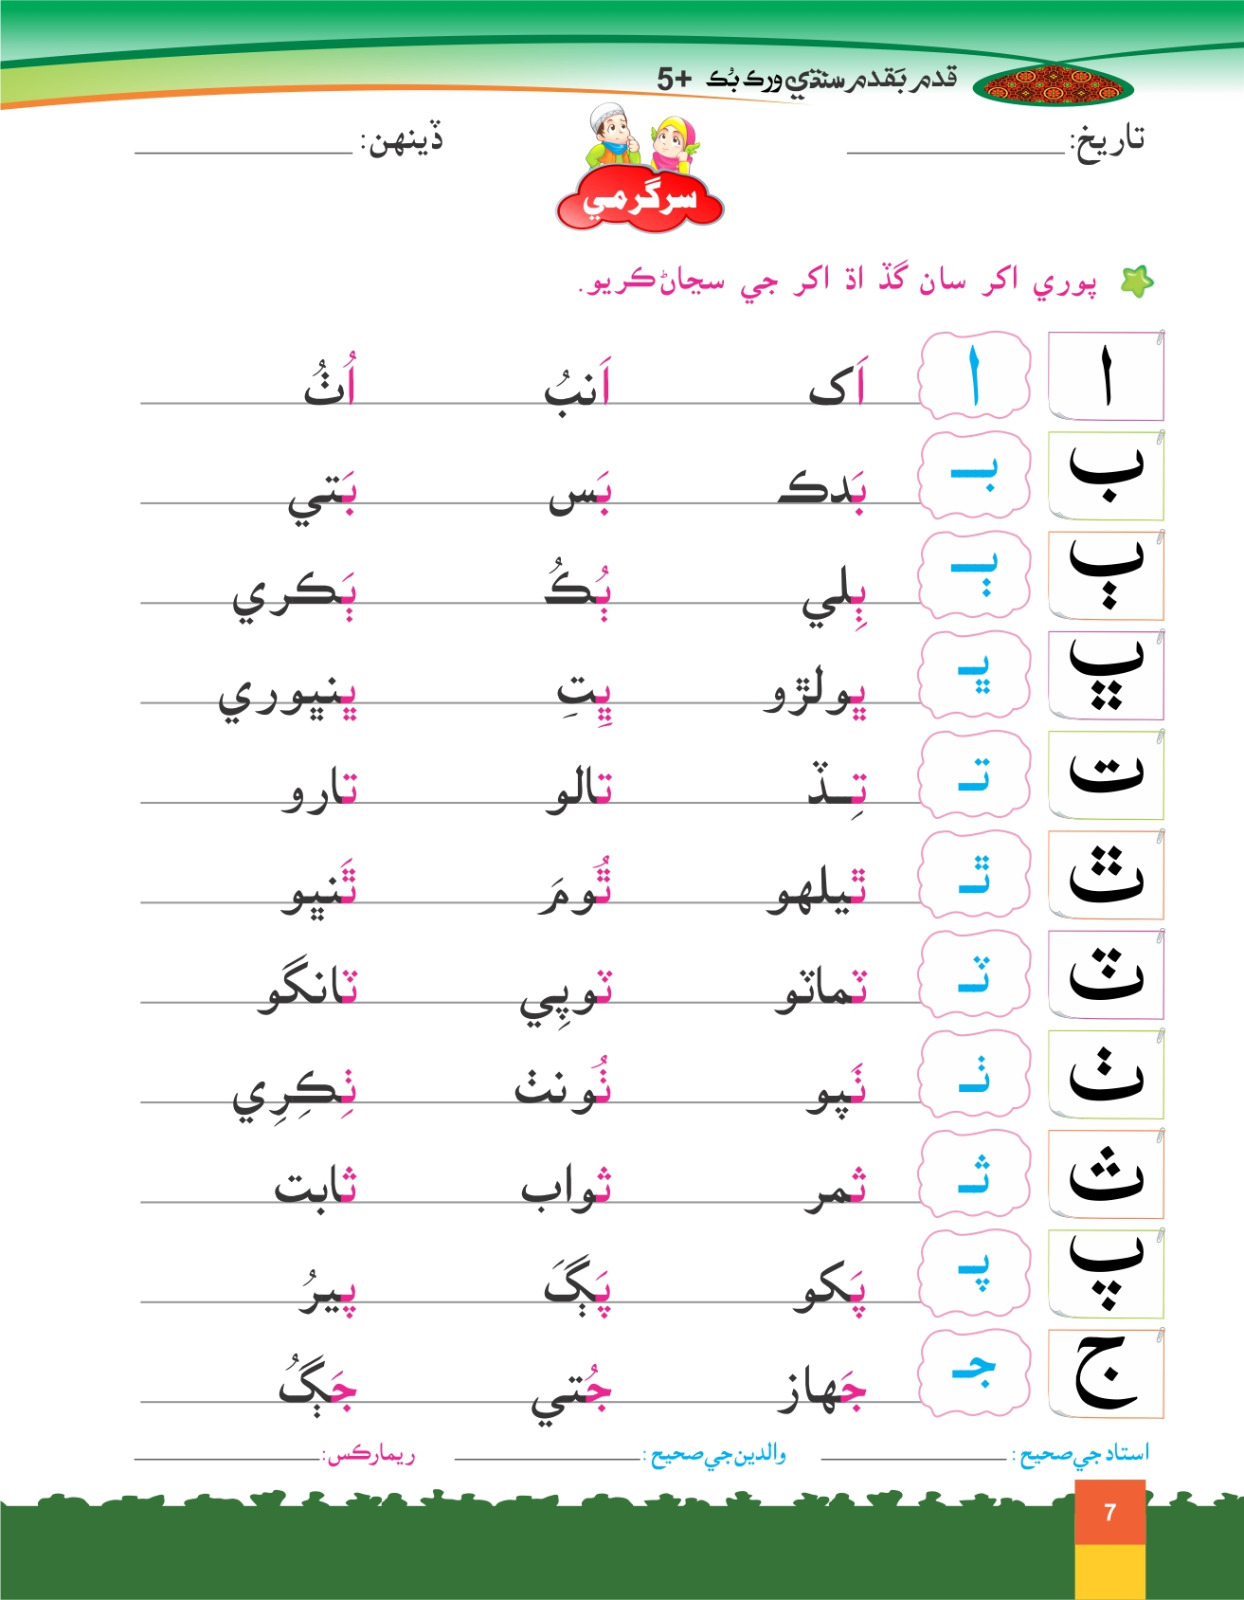 قدم بَقدم سنڌي ورڪ بُڪ +5
تاريخ: ڏينهن:
سرگرمي
پوري اکر سان گڏ اڌ اکر جي سڃاڻ ڪريو.
ا ا اَک اَنبُ اُٺُ
ب بـ بَدڪ بَس بَتي
ٻ ٻـ ٻِلي ٻُڪُ ٻَڪري
ڀ ڀـ ڀولڙو ڀِتِ ڀنڀوري
ت تـ تِـڏ تالو تارو
ٿ ٿـ ٿيلهو ٿُومَ ٿَنڀو
ٽ ٽـ ٽماٽو ٽوپِي ٽانگو
ٺ ٺـ ٺَپو ٺُونٺ ٺِڪِرِي
ث ثـ ثمر ثواب ثابت
پ پـ پَکو پَڳَ پيرُ
ج جـ جَهاز جُتي جَڳُ
استاد جي صحيح: والدين جي صحيح: ريمارڪس:
7